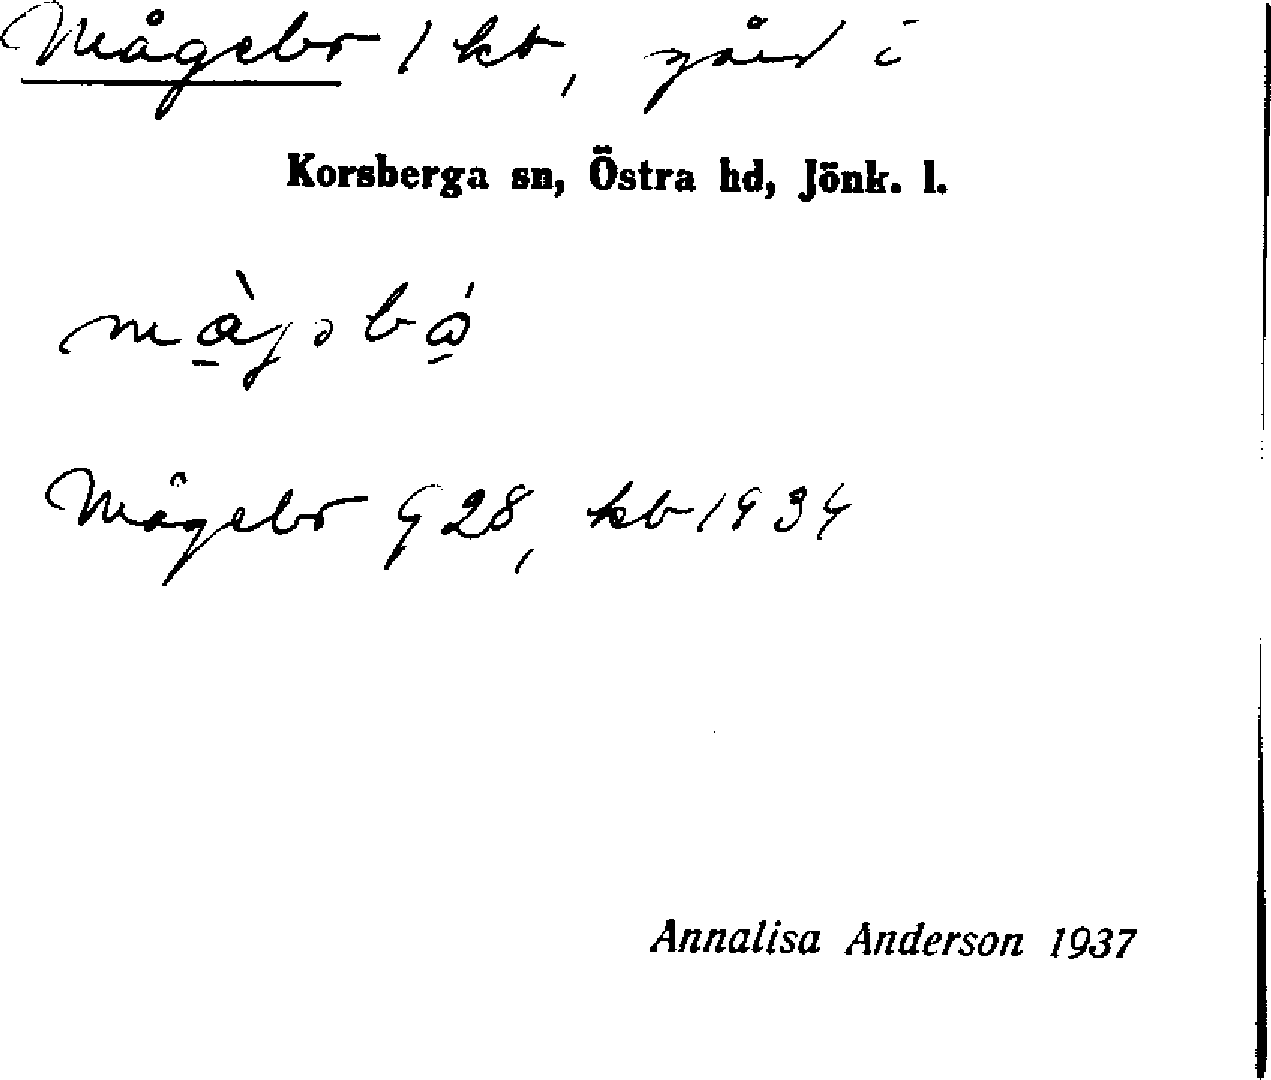 Mågebo 1 kt, gård i
Korsberga sn, Östra hd, Jönk. l.
Mågebo G 28, kb 1934
Annalisa Anderson 1937